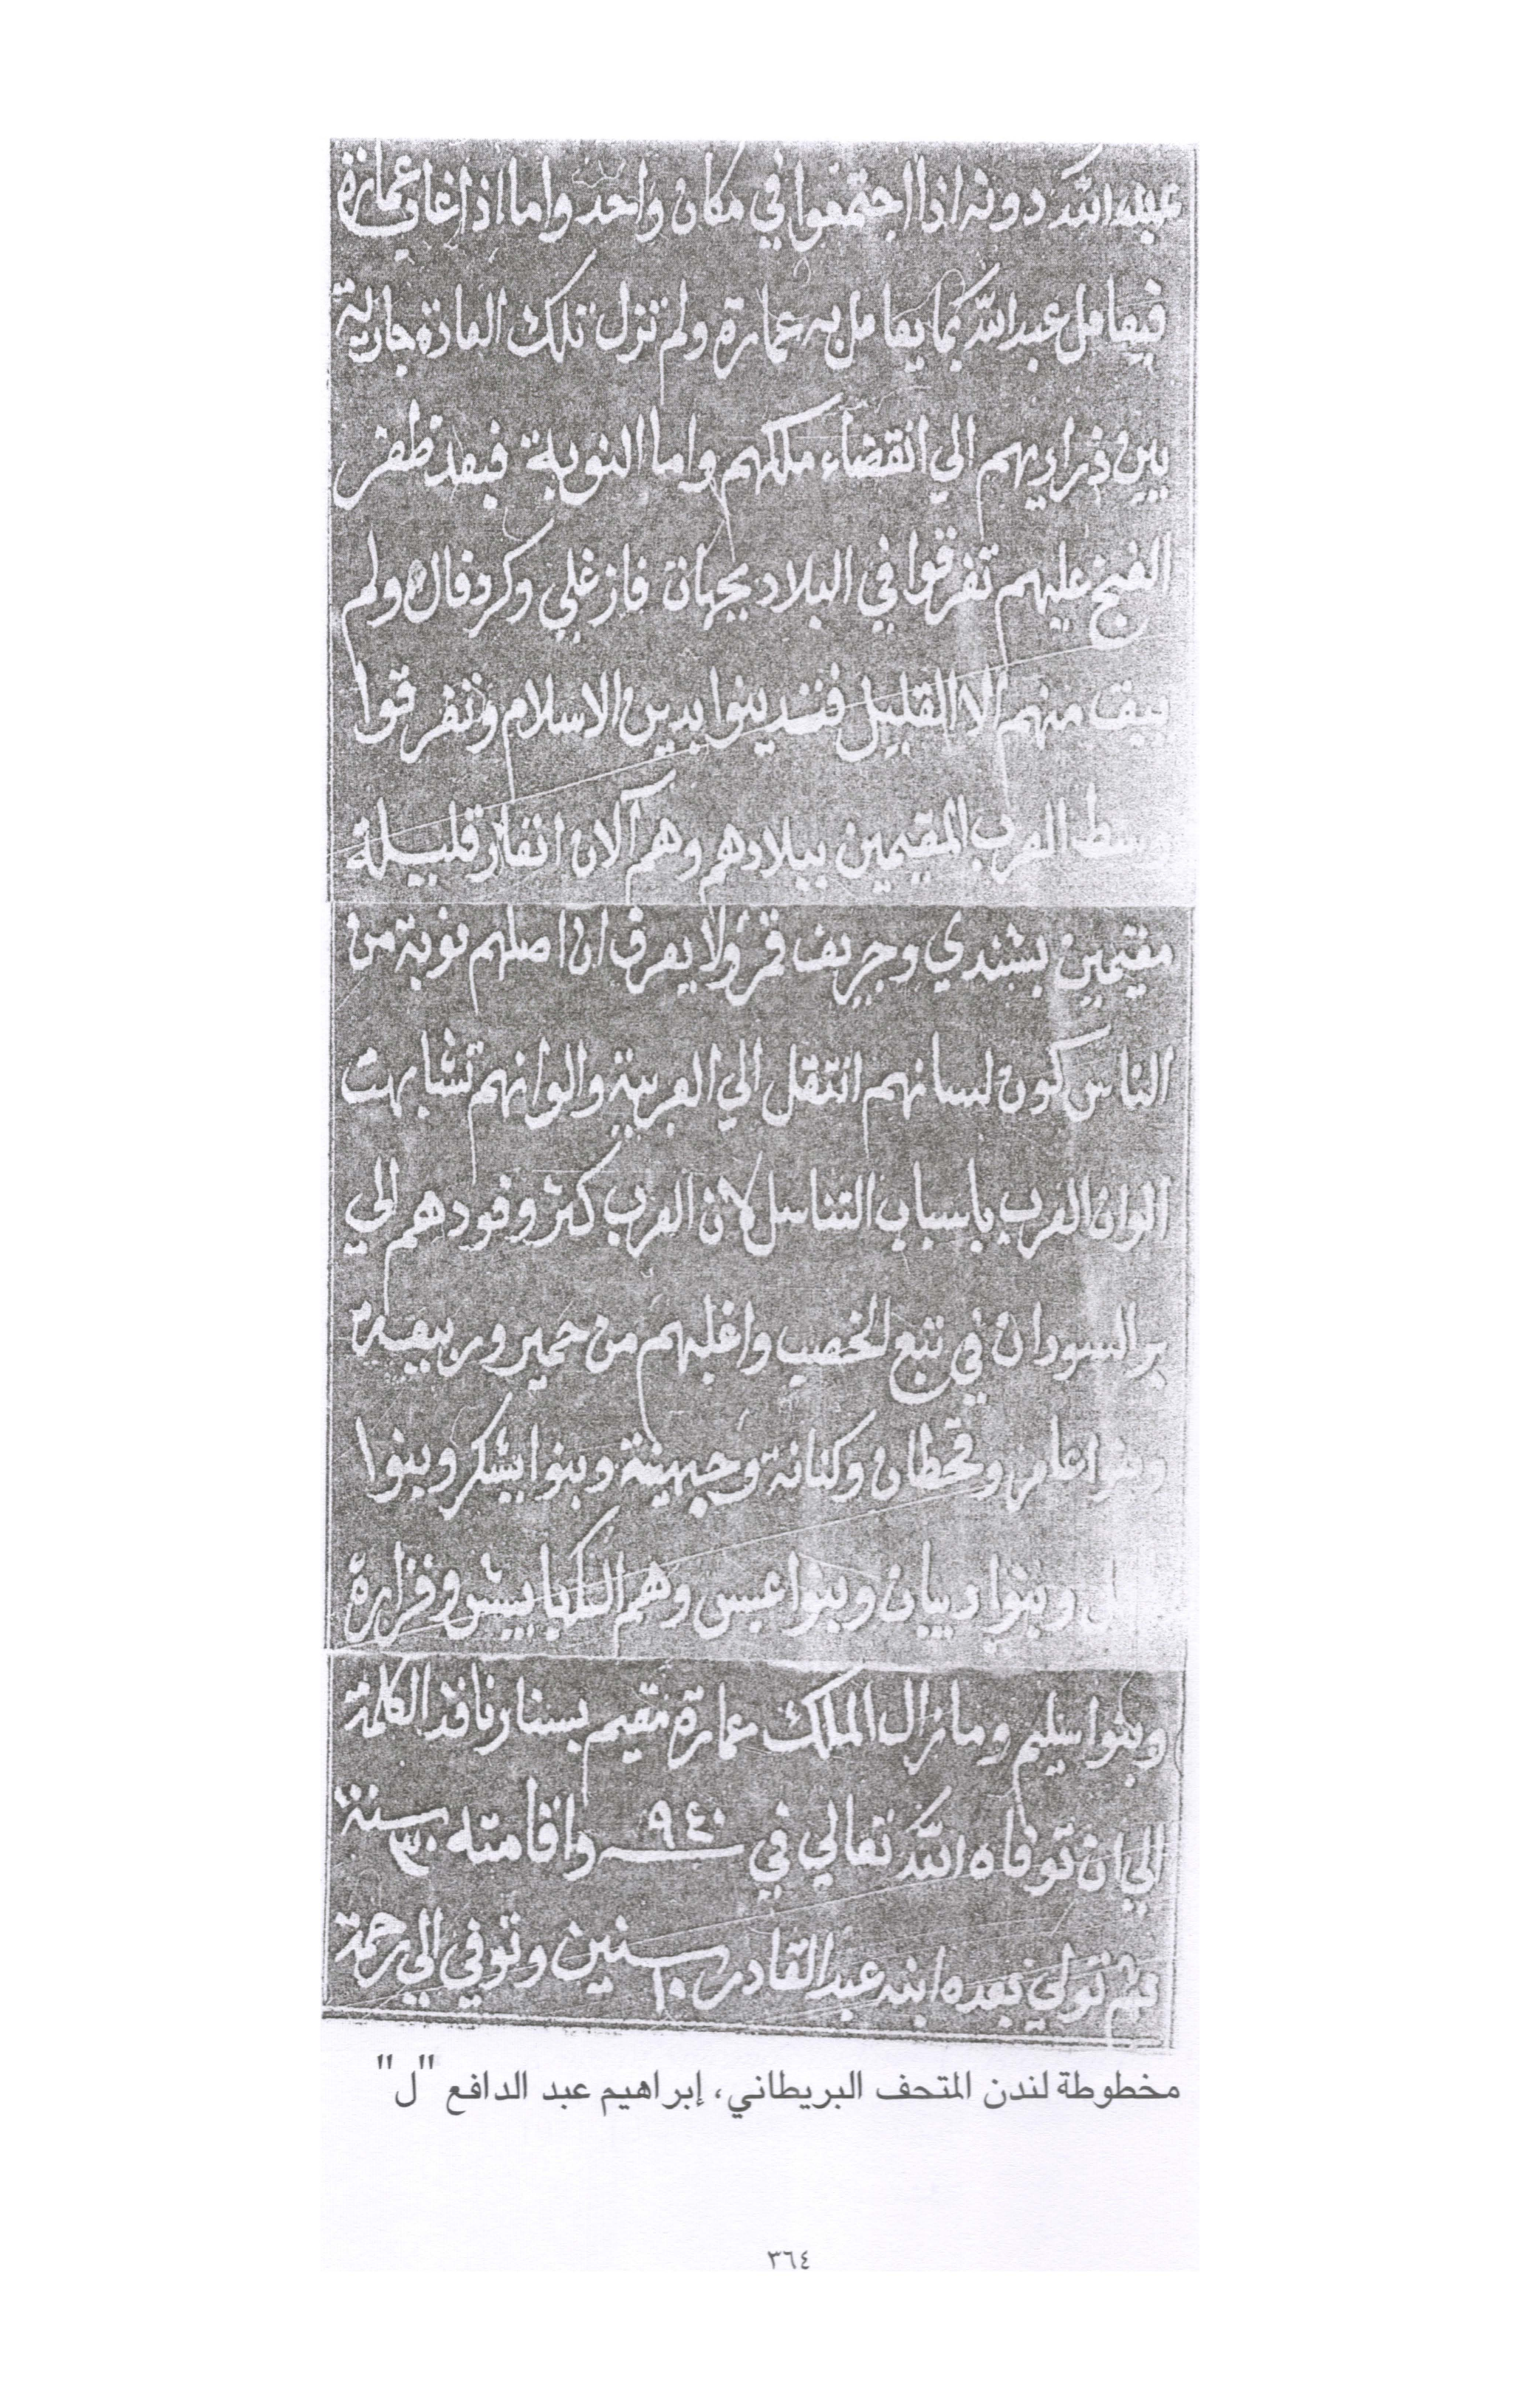 عبد الله دونه اذا اجتمعوا في مكان واحد واما اذا غاب عمارة
فيعامل عبد الله بما يعامل به عمارة ولم تزل تلك العادة جارية
بين ذراريهم الي انقضاء ملكهم واما النوبة فبعد ظفر
الفنج عليهم تفرقوا في البلاد بجهات فازغلي وكردفال ولم
يبق منهم الا القليل فتدينوا بدين الاسلام وتفرقوا
وسط العرب المقيمين ببلادهم وهم الان انفار قليلة
مقيمين بشندي وجريف قمر ولا يعرف ان اصلهم نوبة من
الناس كون لسانهم انتقل الي العربية والوانهم تشابهت
الوان العرب باسباب التناسل لان العرب كثر وفودهم الي
بر السودان في تتبع الخصب واغلبهم من حمير وربيعة
وبنوا عامر وقحطان وكنانة وجهينة وبنوا يشكر وبنوا
وبنوا ديبان وبنوا عبس وهم الكبابيش وفزارة
وبنوا سليم ومازال الملك عمارة مقيم بسنار نافد الكلمة
الي ان توفاه الله تعالي في ٩٤٠ واقامته ٣٠ سنة
ثم تولي بعده ابنه عبد القادر ١٠ سنين وتوفي الي رحمة
مخطوطة لندن المتحف البريطاني، إبراهيم عبد الدافع "ل"
٣٦٤